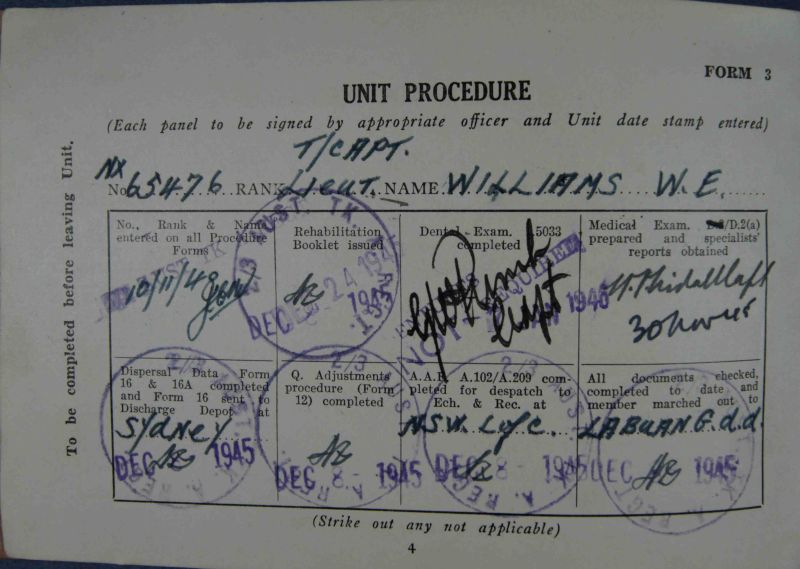 FORM 3
UNIT PROCEDURE
(Each panel to be signed by appropriate officer and Unit date stamp entered)
T/CAPT.
NX
No. 65476 RANK LIEUT. NAME WILLIAMS W.E.
To be completed before leaving Unit.
No., Rank & Name
entered on all Procedure
Forms
10/11/45
Rehabilitation
Booklet issued
DEC 24 1945
Dental Exam. 5033
completed
NOT REQUIRED
Capt
1945
Medical Exam. D.2/D.2(a)
prepared and specialists'
reports obtained
Dispersal Data Form
16 & 16A completed
and Form 16 sent to
Discharge Depot at
SYDNEY
DEC 1945
Q. Adjustments
procedure (Form
12) completed
DEC 8 - 1945
A.A.F. A.102/A.209 com-
pleted for despatch to
Ech. & Rec. at
NSW. L of C.
DEC 8 - 1945
All documents checked,
completed to date and
member marched out to
LABUAN G.d.d.
DEC 1945
(Strike out any not applicable)
4